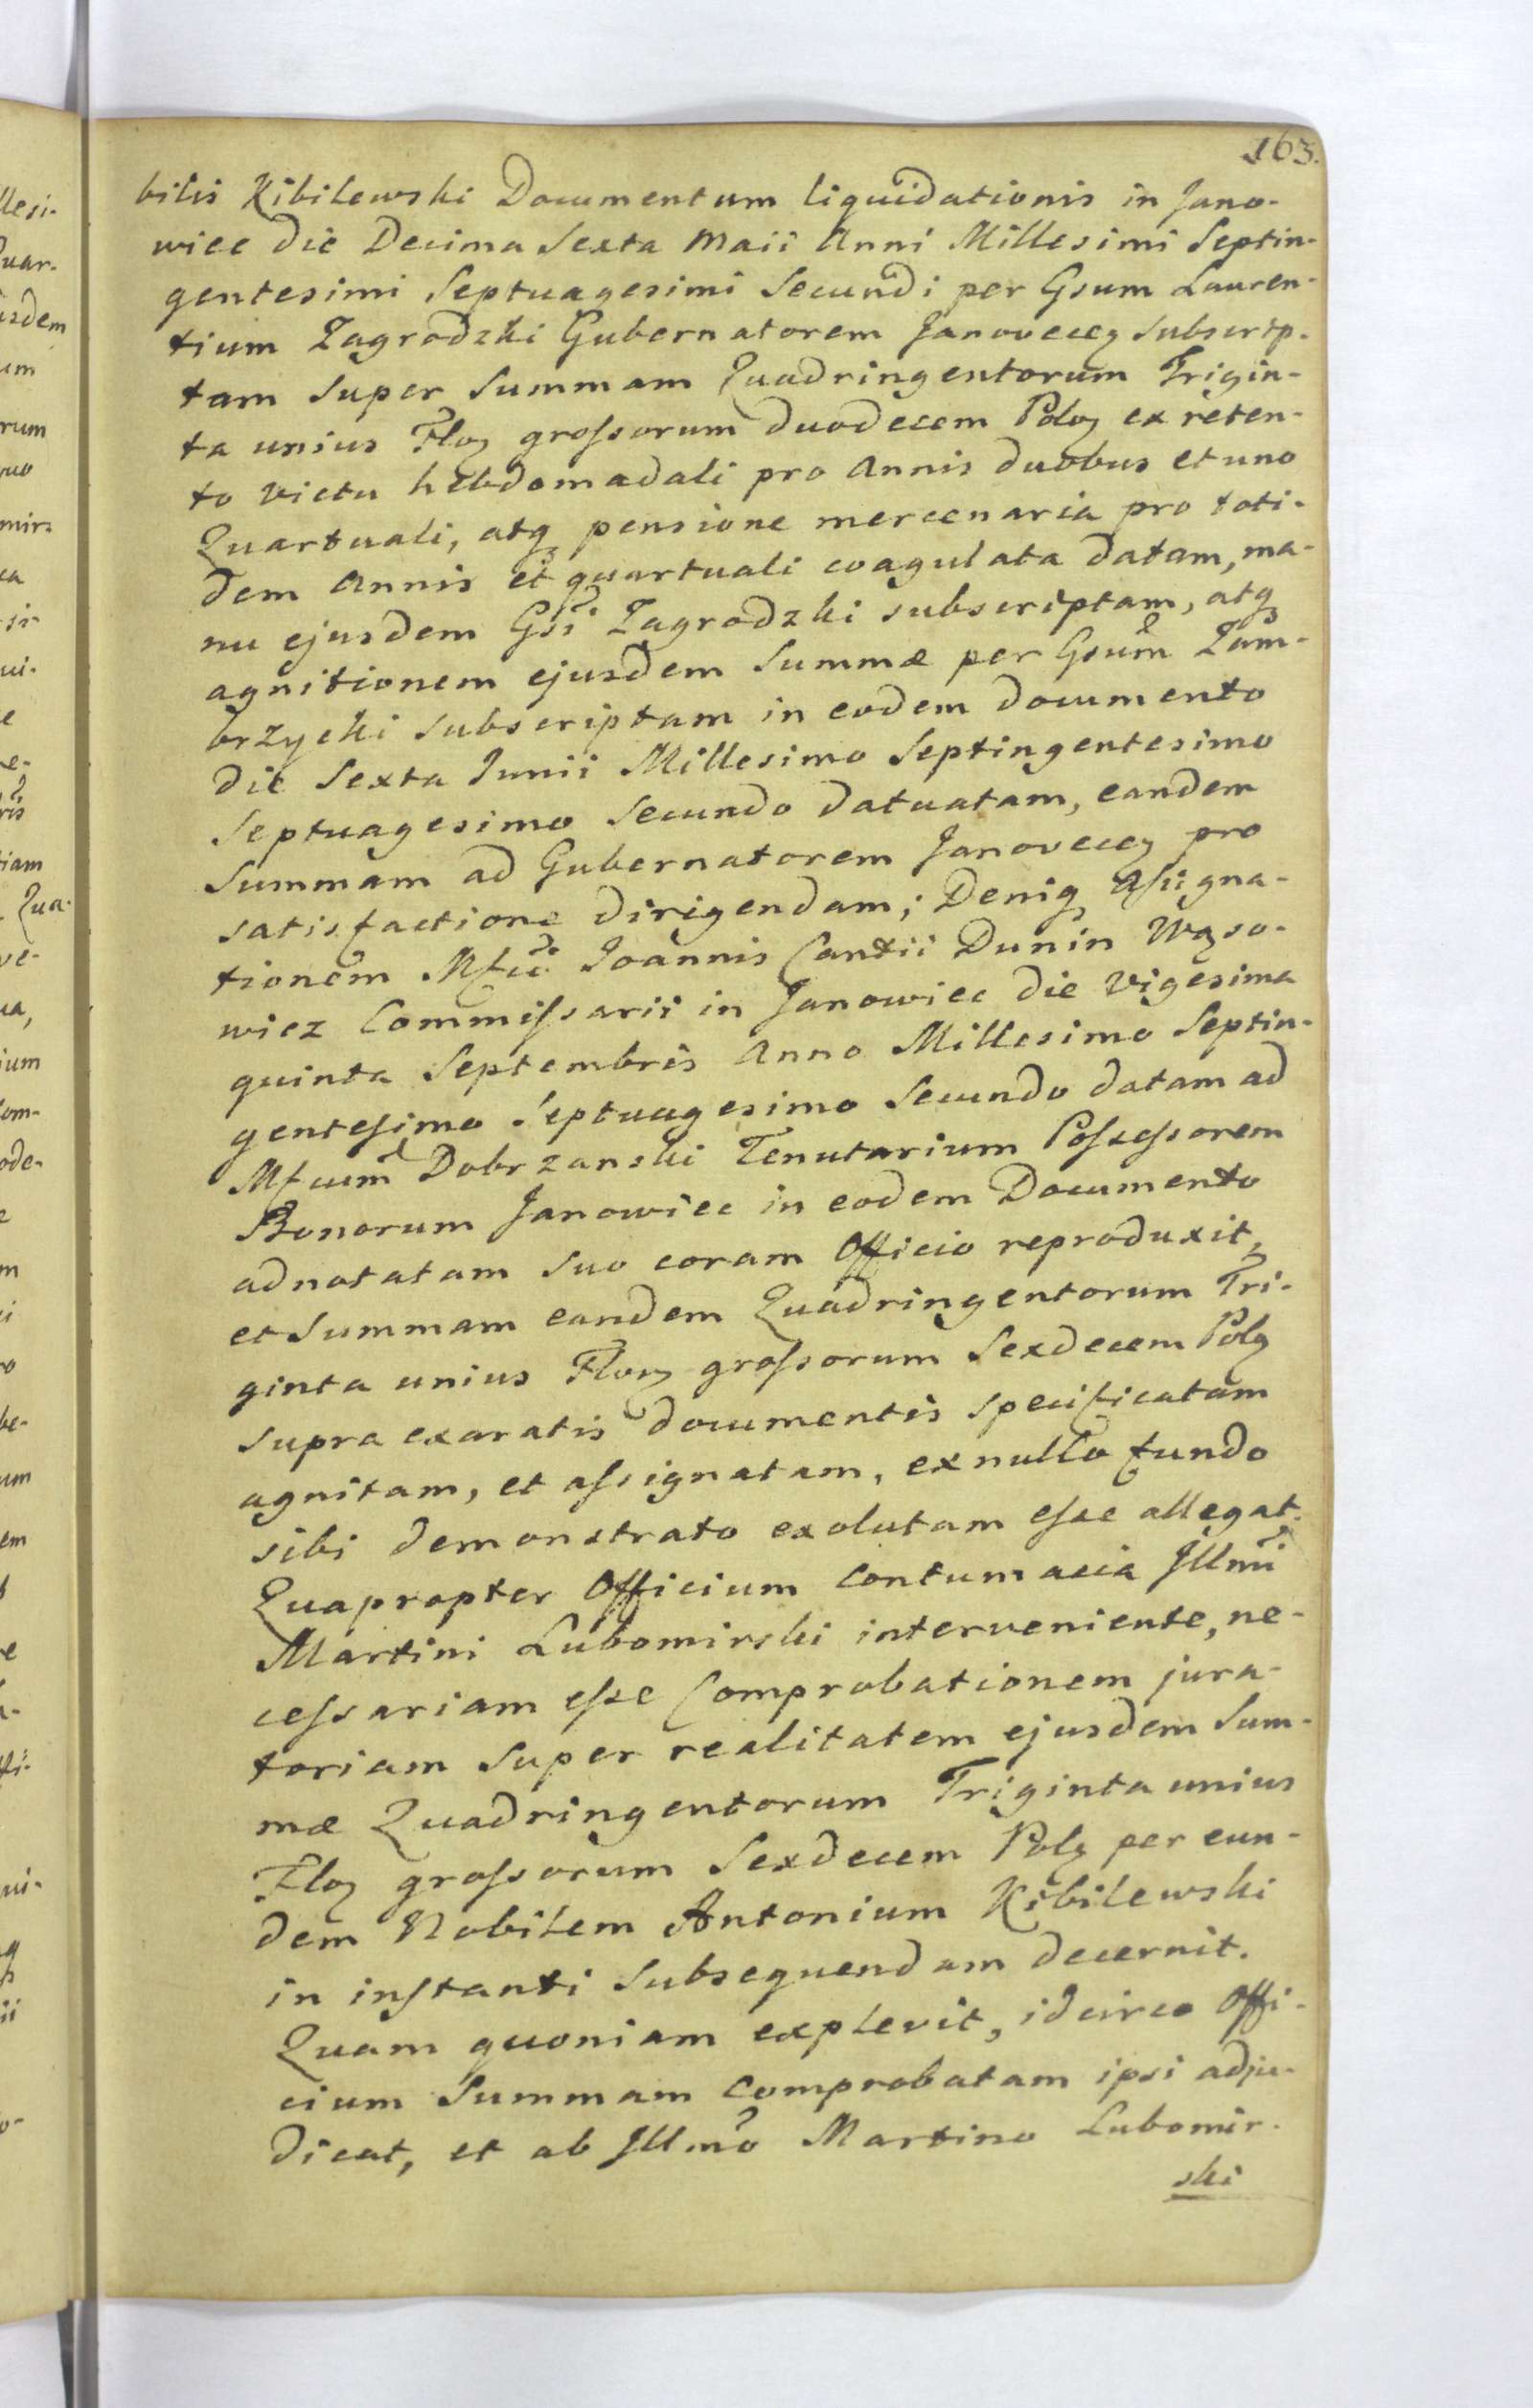 163.
bilis Kibilewski Documentum liquidationis in Jano-
wiec die Decima Sexta Maii Anni Millesimi Septin-
gentesimi Septuagesimi Secundi per Gsum Lauren-
tium Zagrodzki Gubernatorem Janovecen subscrip-
tam super Summam Quadringentorum Trigin-
ta unius Floꝝ grossorum duodecem Poloꝝ ex reten-
to victu hebdomadali pro Annis duobus et uno
Quartuali, atqꝫ pensione mercenaria pro toti-
dem Annis et quartuali coagulata datam, ma-
nu ejusdem Gsi Zagrodzki subscriptam, atqꝫ
agnitionem ejusdem Summæ per Gsum Zam-
brzycki subscriptam in eodem documento
die Sexta Junii Millesimo Septingentesimo
Septuagesimo Secundo datuatam, eandem
Summam ad Gubernatorem Janovecen pro
satisfactione dirigendam; Deniqꝫ Assigna-
tionem Mfci Joannis Cantii Dunin Wąso-
wicz Commissarii in Janowiec die Vigesima
quinta Septembris Anno Millesimo Septin-
gentesimo Septuagesimo Secundo datam ad
Mfcum Dobrzanski Tenutarium Possessorem
Bonorum Janowiec in eodem Documento
adnotatam suo coram Officio reproduxit,
et Summam eandem Quadringentorum Tri-
ginta unius Floꝝ grossorum Sexdecem Polꝝ
supra exaratis documentis specificatam
agnitam, et assignatam, ex nullo fundo
sibi demonstrato exolutam esse allegat.
Quapropter Officium contumacia Illmi
Martini Lubomirski interveniente, ne-
cessariam esse Comprobationem jura-
toriam super realitatem ejusdem Sum-
mæ Quadringentorum Triginta unius
Floꝝ grossorum Sexdecem Polꝝ per eun-
dem Nobilem Antonium Kibilewski
in instanti subsequendam decernit.
Quam quoniam explevit, idcirco Offi-
cium Summam comprobatam ipsi adju-
dicat, et ab Illmo Martino Lubomir-
ski